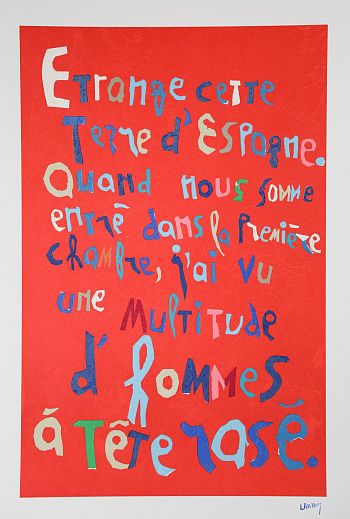 Etrange cette
Terre d'Espagne.
Quand nous somme
entré dans la Première
chambre, j'ai vu
une Multitude
d'hommes
à Tête rasé.